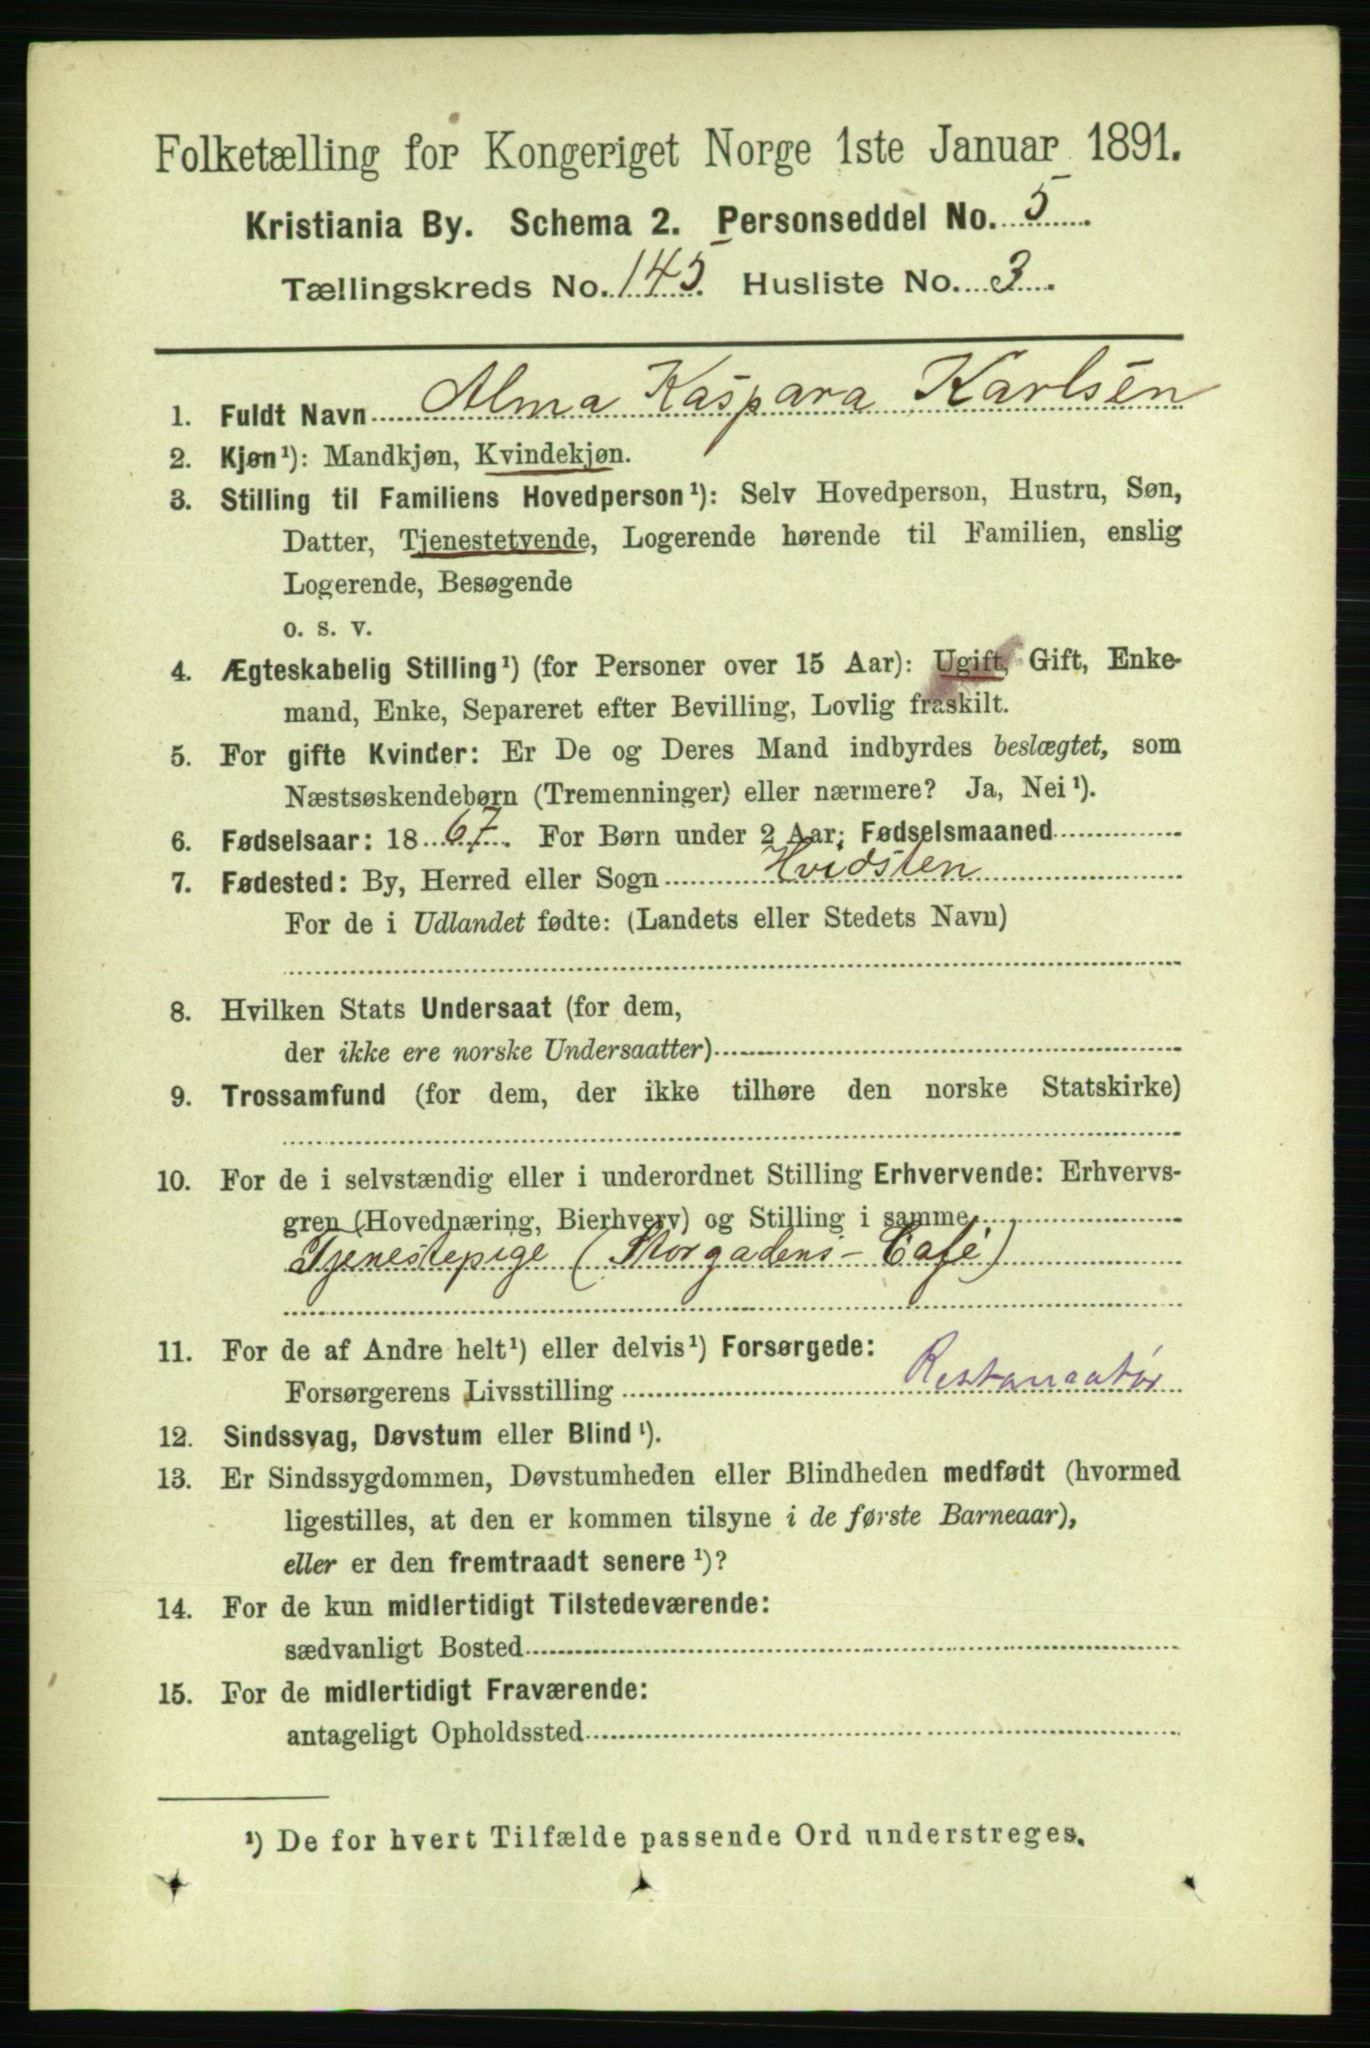 Folketælling for Kongeriget Norge 1ste Januar 1891.
Kristiania By. Schema 2. Personseddel No. 5.
Tællingskreds No. 145. Husliste No. 3.
1. Fuldt Navn Alma Kaspara Karlsen
2. Kjøn¹): Mandkjøn, Kvindekjøn.
3. Stilling til Familiens Hovedperson¹): Selv Hovedperson, Hustru, Søn,
Datter, Tjenestetyende, Logerende hørende til Familien, enslig
Logerende, Besøgende
o. s. v.
4. Ægteskabelig Stilling¹) (for Personer over 15 Aar): Ugift, Gift, Enke-
mand, Enke, Separeret efter Bevilling, Lovlig fraskilt.
5. For gifte Kvinder: Er De og Deres Mand indbyrdes beslægtet, som
Næstsøskendebørn (Tremenninger) eller nærmere? Ja, Nei¹).
6. Fødselsaar: 1867. For Børn under 2 Aar: Fødselsmaaned
7. Fødested: By, Herred eller Sogn Hvidsten
For de i Udlandet fødte: (Landets eller Stedets Navn)
8. Hvilken Stats Undersaat (for dem,
der ikke ere norske Undersaatter)
9. Trossamfund (for dem, der ikke tilhøre den norske Statskirke)
10. For de i selvstændig eller i underordnet Stilling Erhvervende: Erhvervs-
gren (Hovednæring, Bierhverv) og Stilling i samme
Tjenestepige (Storgadens-Café)
11. For de af Andre helt¹) eller delvis¹) Forsørgede:
Forsørgerens Livsstilling Restauratør
12. Sindssvag, Døvstum eller Blind¹).
13. Er Sindssygdommen, Døvstumheden eller Blindheden medfødt (hvormed
ligestilles, at den er kommen tilsyne i de første Barneaar),
eller er den fremtraadt senere¹)?
14. For de kun midlertidigt Tilstedeværende:
sædvanligt Bosted
15. For de midlertidigt Fraværende:
antageligt Opholdssted
¹) De for hvert Tilfælde passende Ord understreges.